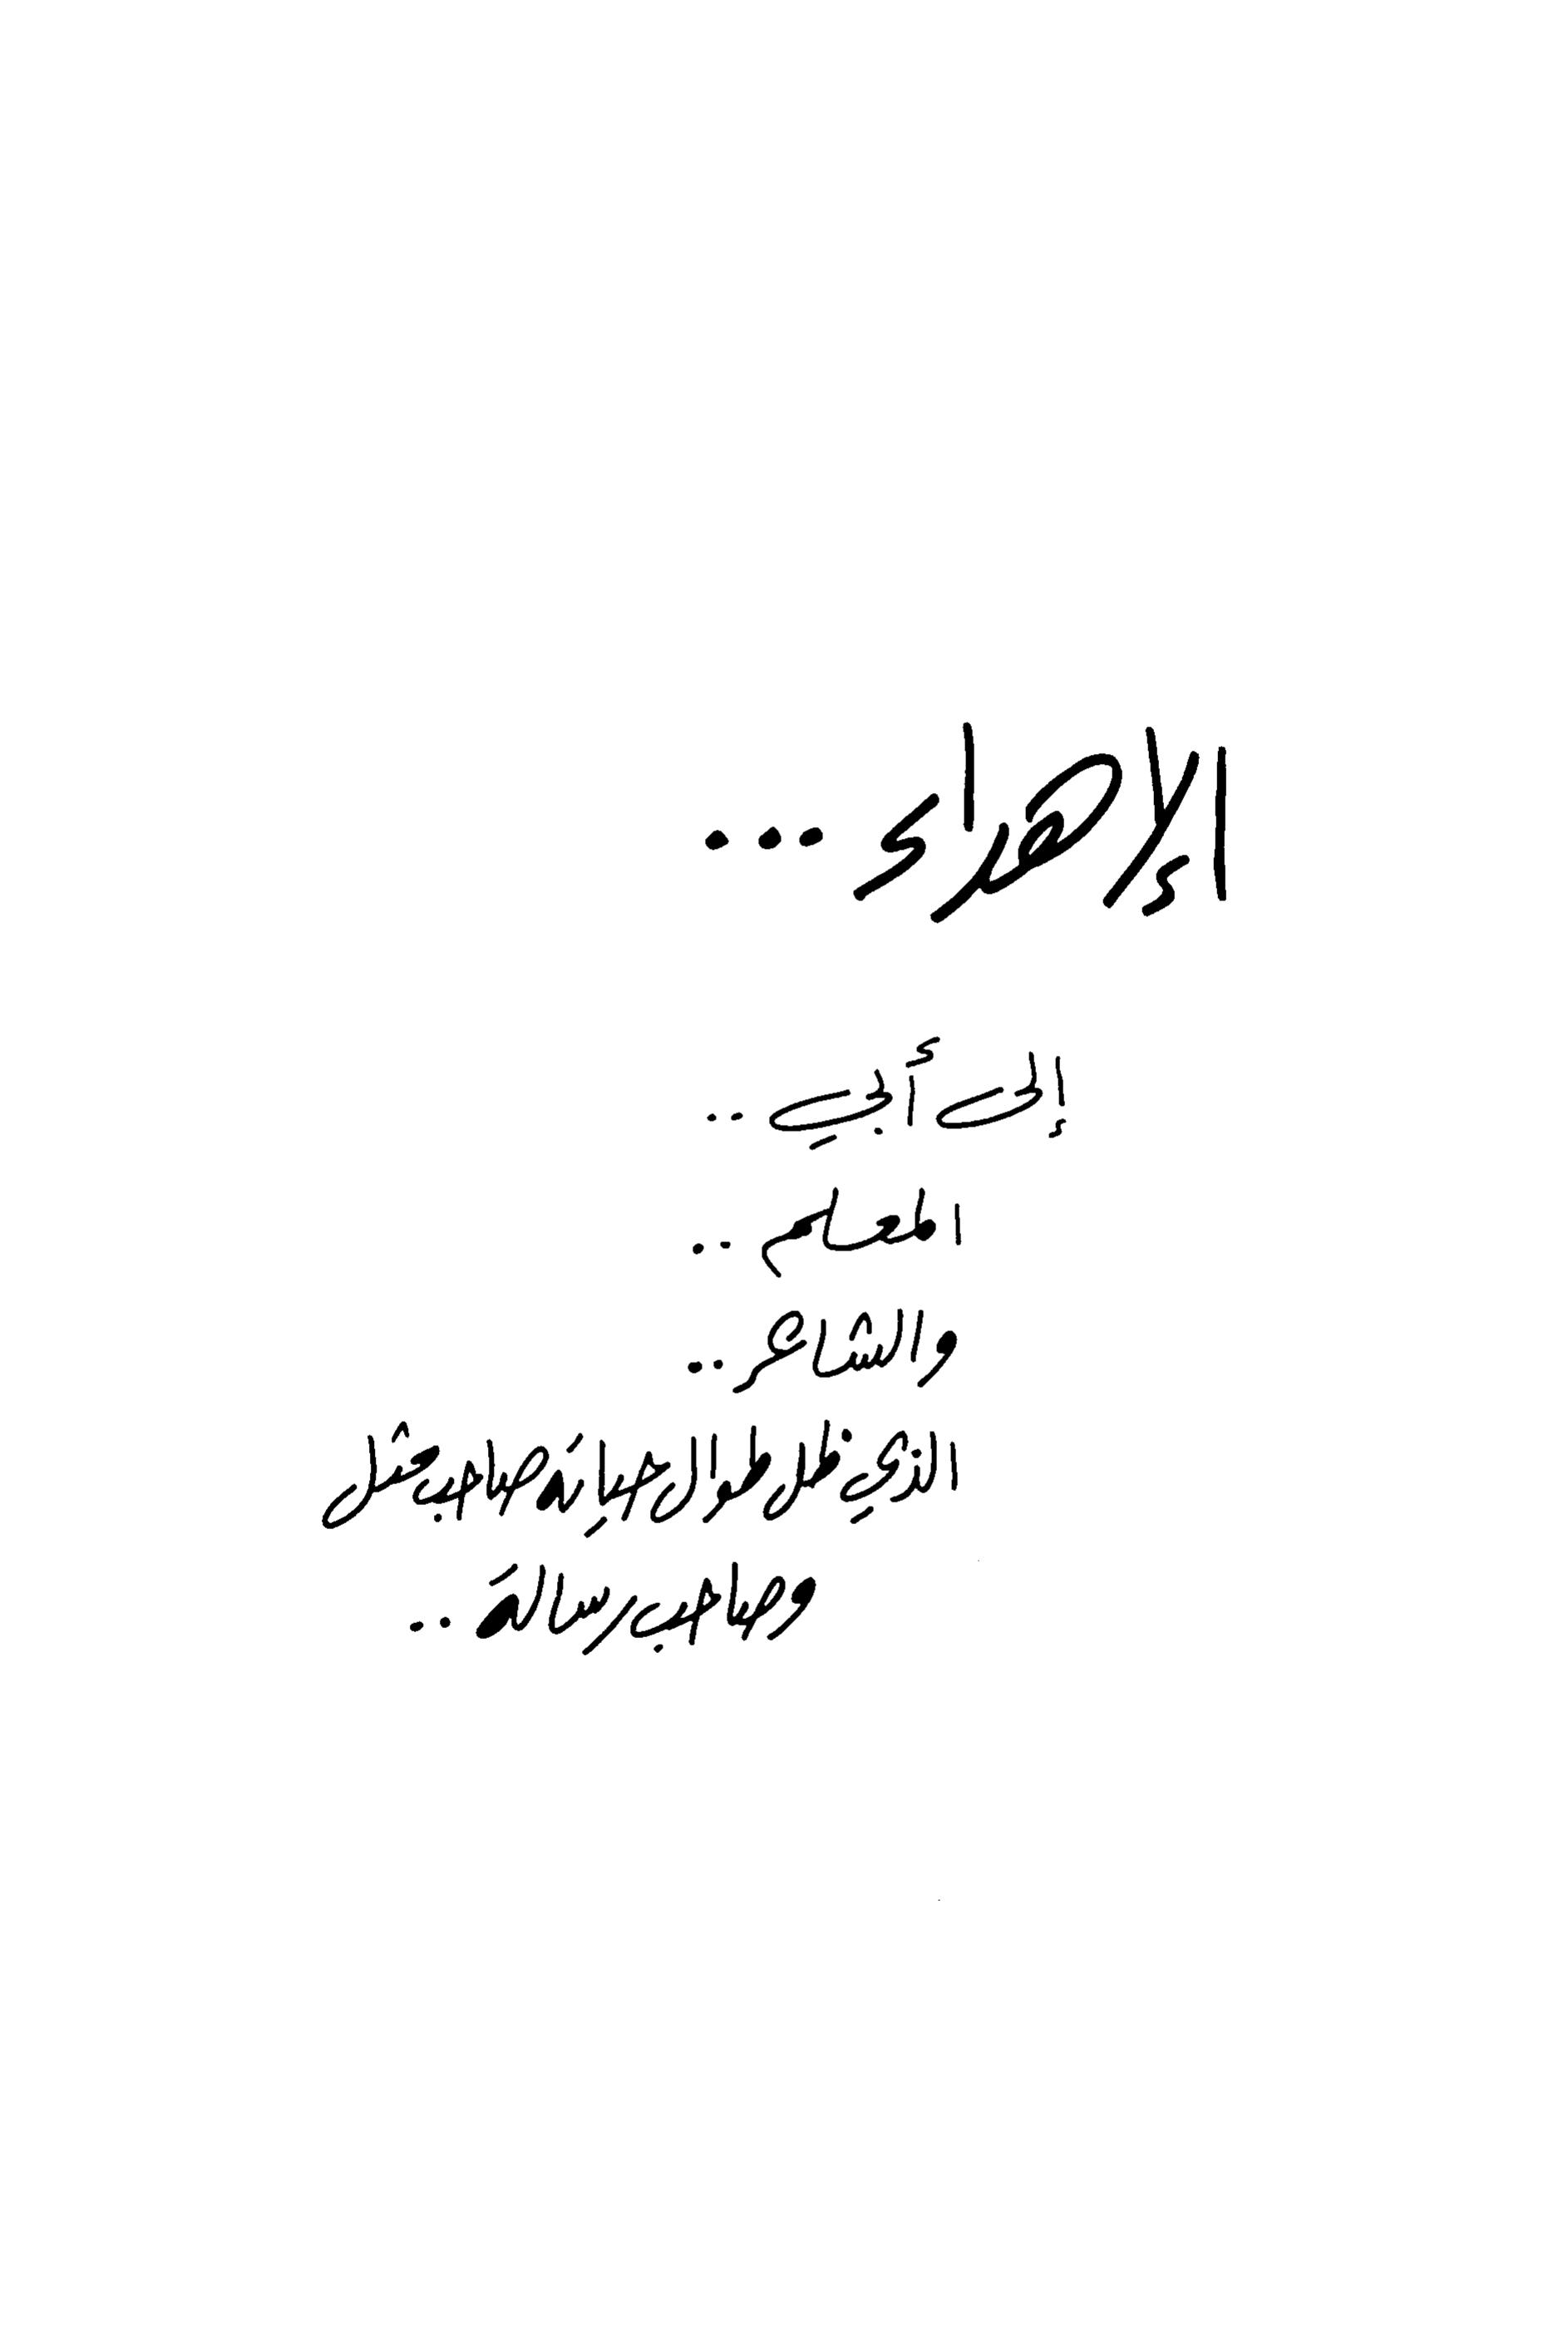 الإهداء ...
إلى أبي ..
المعلم ..
والشاعر ..
الذي ظل طوال حياته صاحب مثل
وصاحب رسالة ..